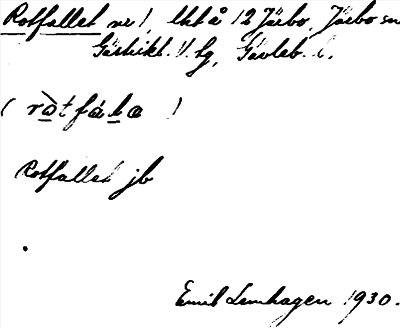 Rotfallet nr 1, lht å 12 Järbo, Järbo sn
Gästrikl. V. hg, Gävleb. l.
( ròtfála )
Rotfallet jb
Emil Lenhagen 1930.